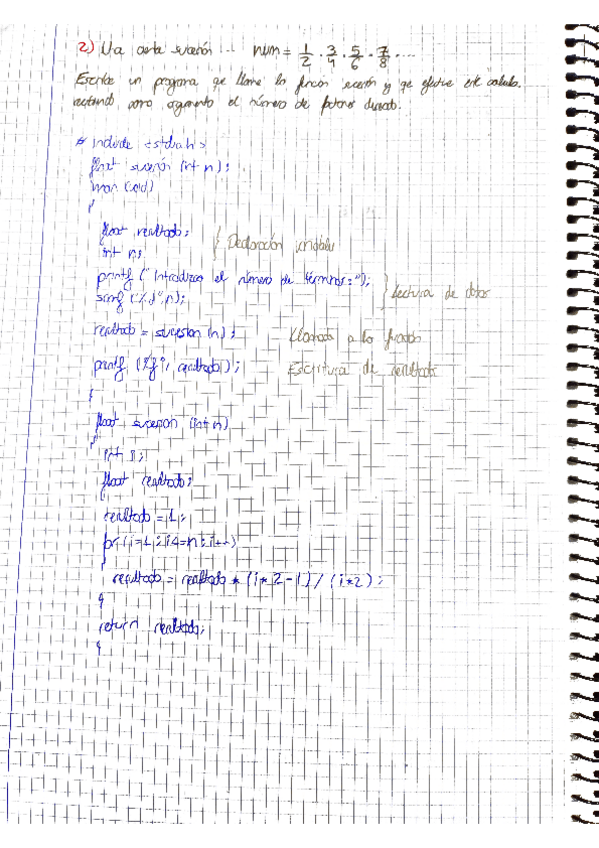 2) Una cierta sucesión ... num = 1/2 · 3/4 · 5/6 · 7/8 · ...
Escribe un programa que llame la función sucesión y que efectue este calculo.
actuando como argumento el número de factores deseado.
# include <stdio.h>
float sucesión (int n);
main (void)
{
float resultado; } Declaración variables
int n;
printf ("Introduzca el número de términos:"); } Lectura de datos
scanf ("%d", n);
resultado = sucesion (n); Llamada a la función
printf ("%f", resultado); Escritura de resultado
}
float sucesion (int n)
{
int i;
float resultado;
{
resultado = 1;
for (i=1; i<=n; i++)
{
resultado = resultado * (i*2-1) / (i*2);
}
return resultado;
}